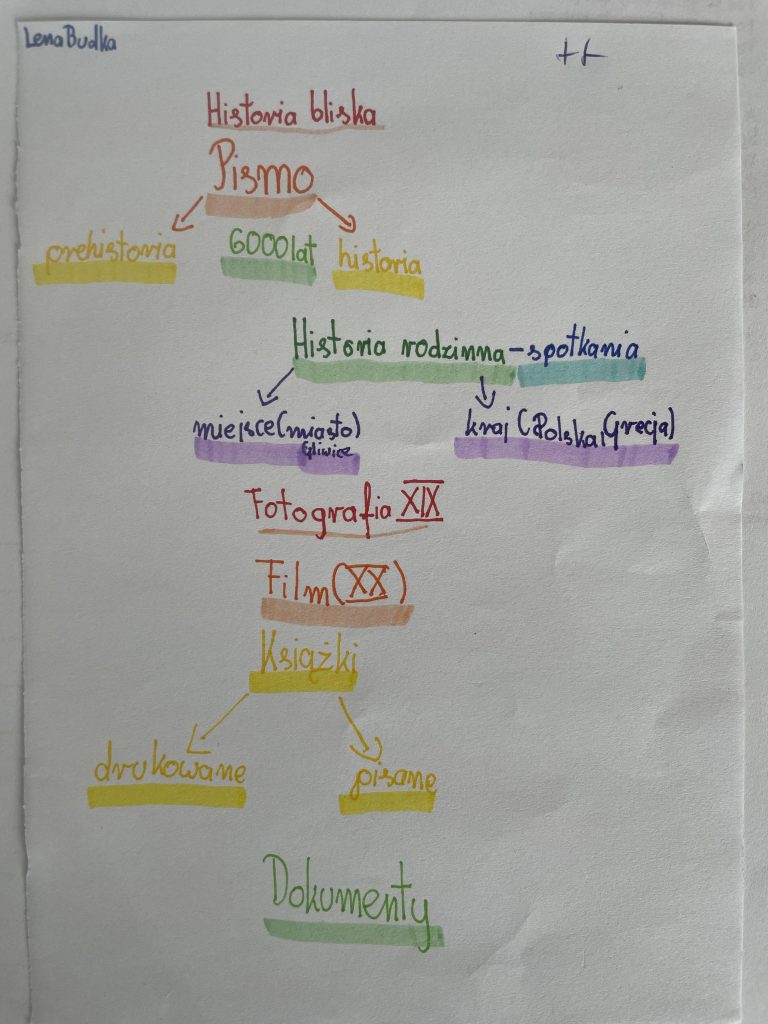 Lena Budka
++
Historia bliska
Pismo
prehistoria 6000 lat historia
Historia rodzinna - spotkania
miejsce (miasto) kraj (Polska, Grecja)
Gliwice
Fotografia XIX
Film (XX)
Książki
drukowane pisane
Dokumenty